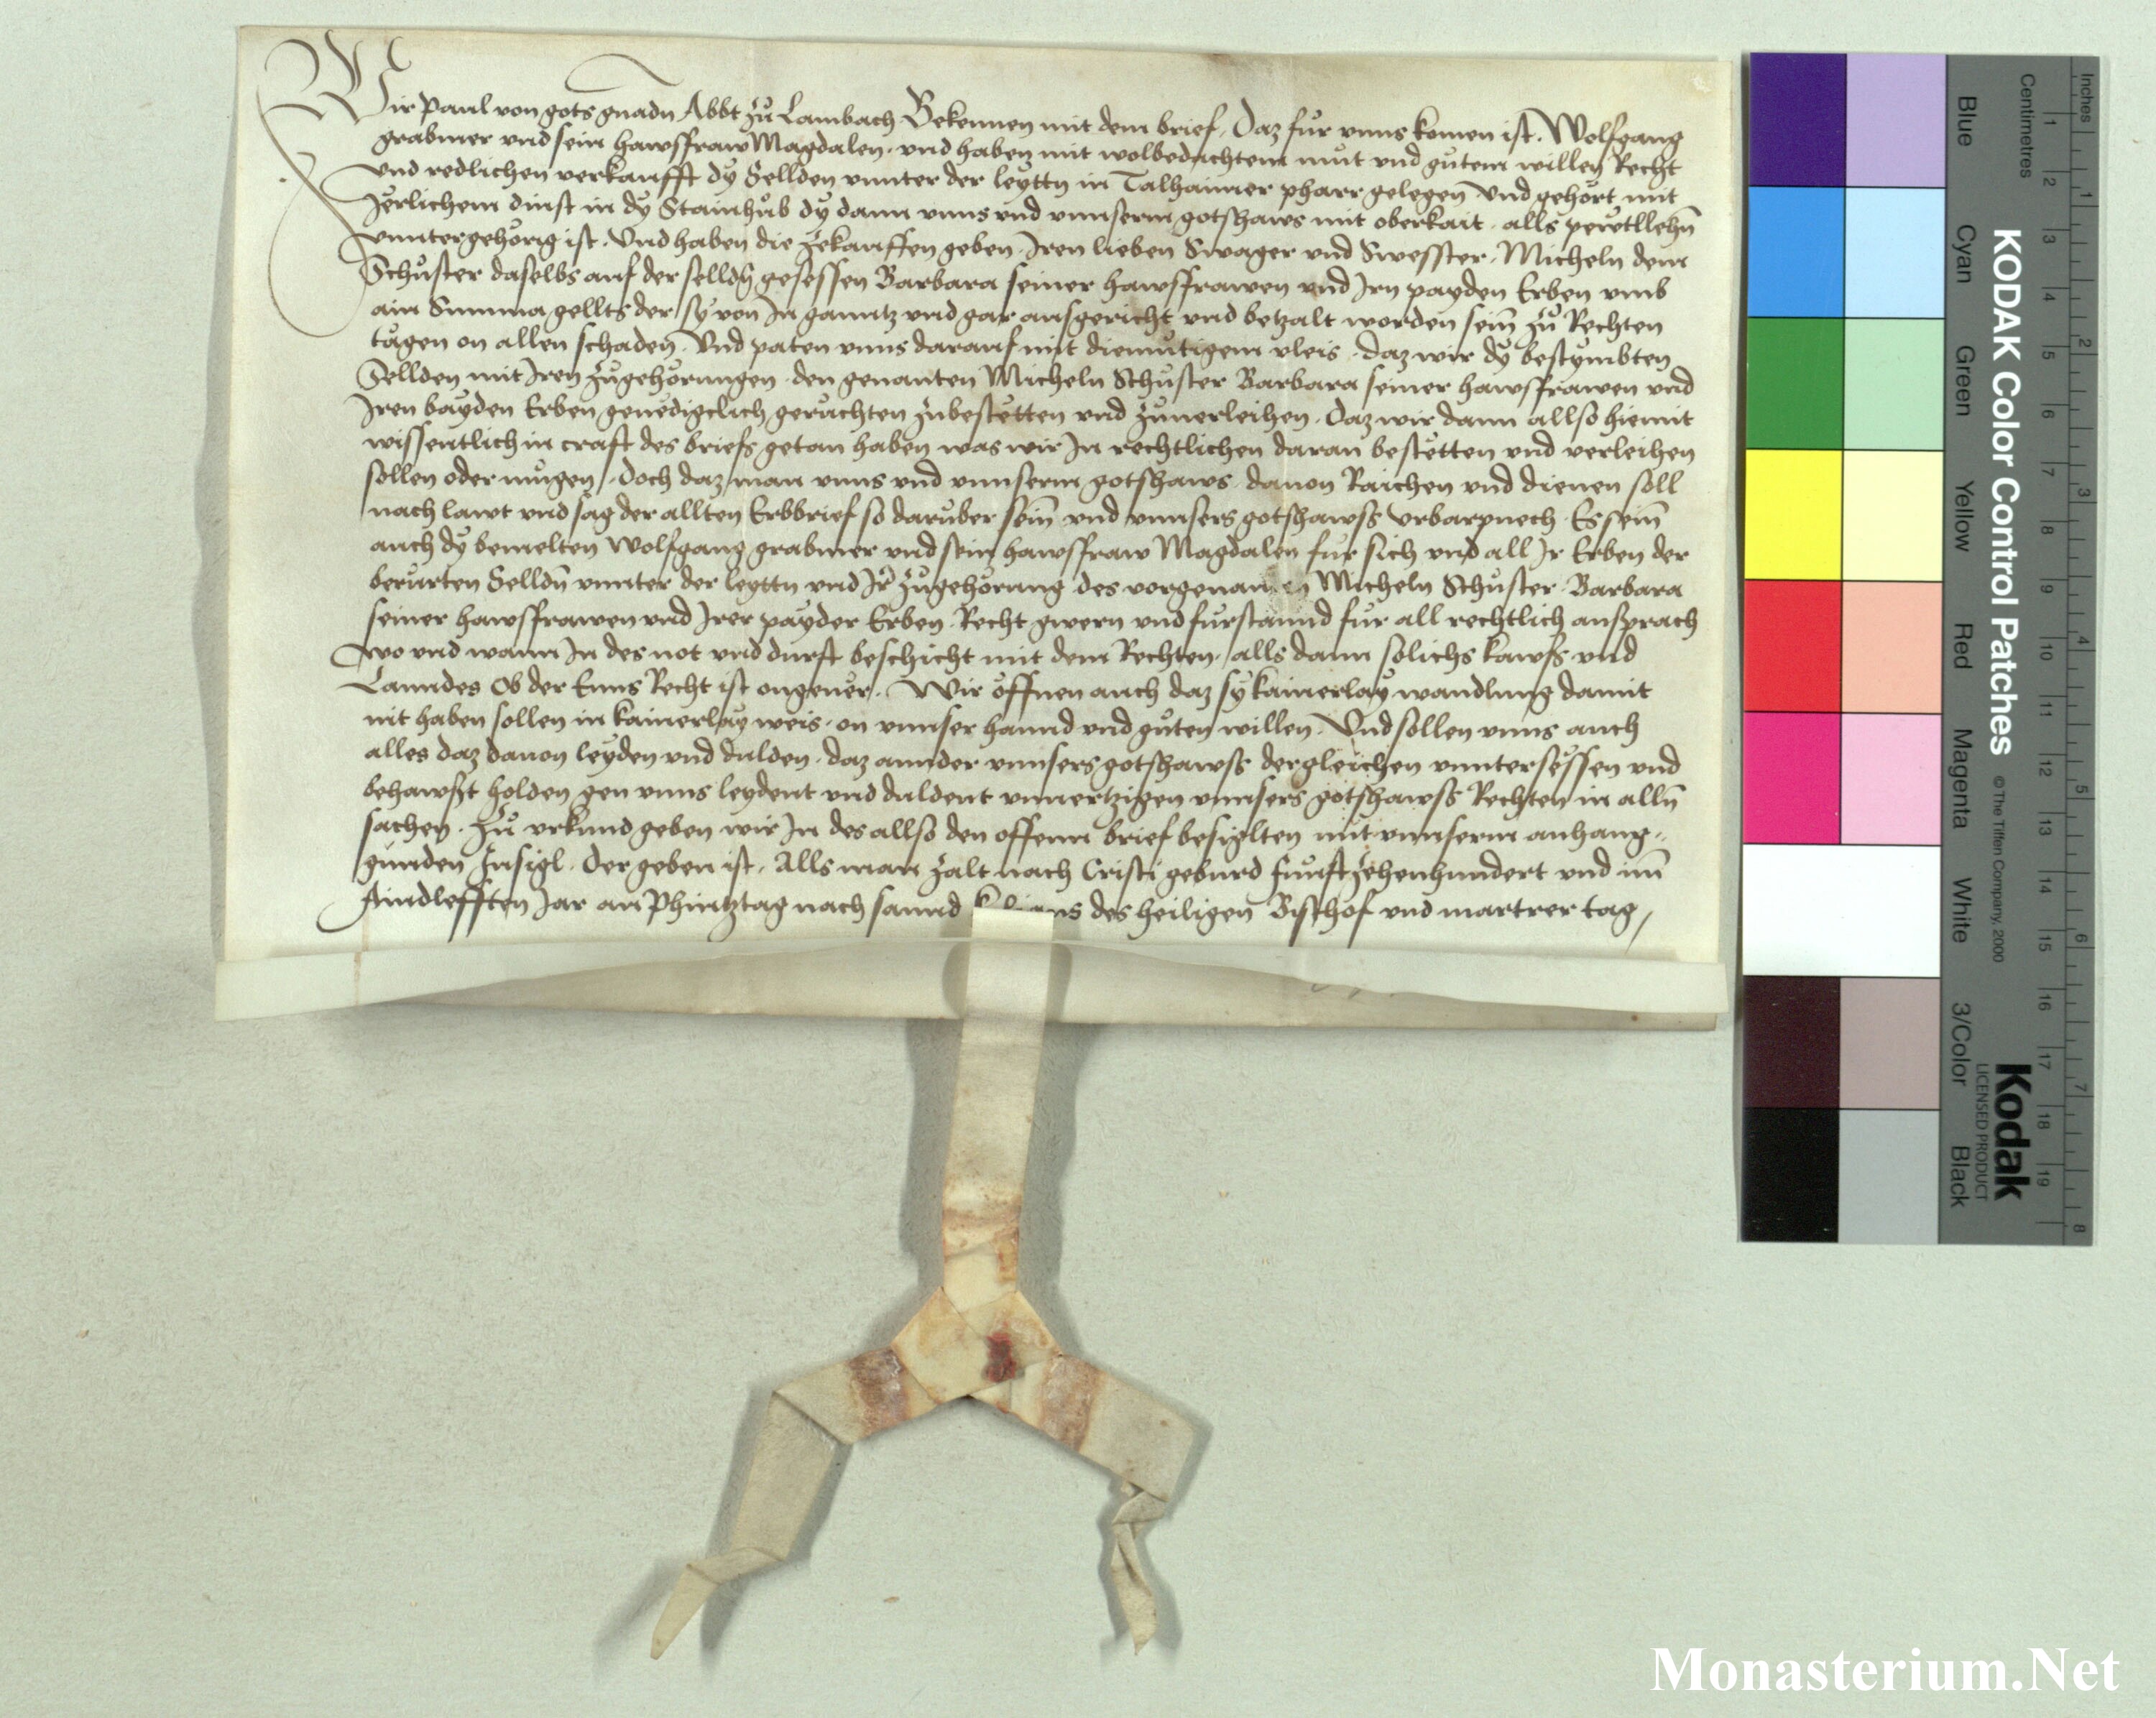 Wir Paul von gots gnadn Abbt zů Lambach Bekennen mit dem brief, Daz fůr vnns komen ist. Wolfgang
grabmer vnd sein hawsfraw Magdalen. vnd haben mit wolbedachtem můt vnd gůtem willen Recht
vnd redlichen verkaufft dÿ Sellden vnnter der leÿttn in Talhaimer pharr gelegen Vnd gehört mit
Jerlichem dinst in dÿ Stainhůb dÿ dann vnns vnd vnnserm gotshaws mit oberkait. alls pewtllehn̄
vnntergehörig ist. Vnd haben die zekauffen geben. Iren lieben Swager vnd Swesster. Micheln dem
Schůster daselbs auf der selldn̄ gesessen Barbara seiner hawsfrawen vnd Irn payden Erben vmb
ain Summa gellts der sÿ von In ganntz vnd gar ausgericht vnd betzalt worden sein̄ zů Rechten
tågen on allen schaden. Vnd paten vnns darauf mit diemůtigem vleis. daz wir dÿ bestÿmbten
Sellden mit Iren zůgehörungen. den genanten Micheln Schůster Barbara seiner hawsfrawen vnd
Iren baÿden Erben genedigclich gerůchten zubestetten vnd zuuerleihen. Daz wir dann allso hiemit
wissentlich in craft des briefs getan haben was wir In rechtlichen daran bestetten vnd verleihen
sollen oder mugen. doch daz man vnns vnd vnnserm gotshaws. dauon Raichen vnd dienen soll
nach lawt vnd sag der allten Erbbrief so darůber sein̄ vnd vnnsers gotshawss vrbarpuech. Es sein̄
auch dÿ bemelten Wolfgang grabmer vnd sein hawsfraw Magdalen fur sich vnd all Ir Erben der
berůrten Selldn̄ vnnter der leyttn vnd Ir zůgehörung des vorgenan en Micheln Schůster. Barbara
seiner hawsfrawen vnd Irer paÿder Erben. Recht gwern vnd fůrstannd fůr all rechtlich ansprach
wo vnd wann In des not vnd durft beschicht mit dem Rechten. alls dann solichs kawfs vnd
Lanndes Ob der Enns Recht ist ongeuer. Wir öffnen auch daz sÿ kainerlaÿ wandlung damit
nit haben sollen in kainerlaÿ weis. on vnnser hannd vnd gůten willen. Vnd sollen vnns auch
alles daz dauon leÿden vnd dulden. daz annder vnnsers gotshawss dergleichen vnntersessen vnd
behawst holden gen vnns leydent vnd duldent vnuertzigen vnnsers gotshawss Rechten in alln̄
sachen. Zů vrkund geben wir In des allso den offenn brief besiglten mit vnnserm anhang-
gunden Insigl. Der geben ist. Alls man zalt nach Cristi geburd funftzehenhundert vnd im̄
Aindlefften Jar an Phintztag nach sannd des heiligen Bischof vnd martrer tag
KODAK Color Control Patches
© The Tiffen Company, 2000
Kodak
LICENSED PRODUCT
Inches
Centimetres
1 2 3 4 5 6 7 8 9 10 11 12 13 14 15 16 17 18 19
1 2 3 4 5 6 7 8
Blue
Cyan
Green
Yellow
Red
Magenta
White
3/Color
Black
Monasterium.Net